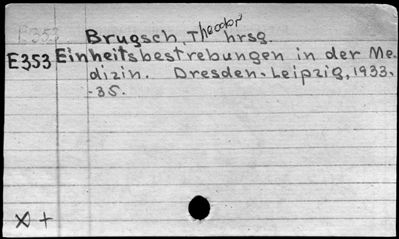 E353 Brugsch, Theodor hrsg.
E353 Einheitsbestrebungen in der Me-
dizin. Dresden-Leipzig, 1933.
-35.